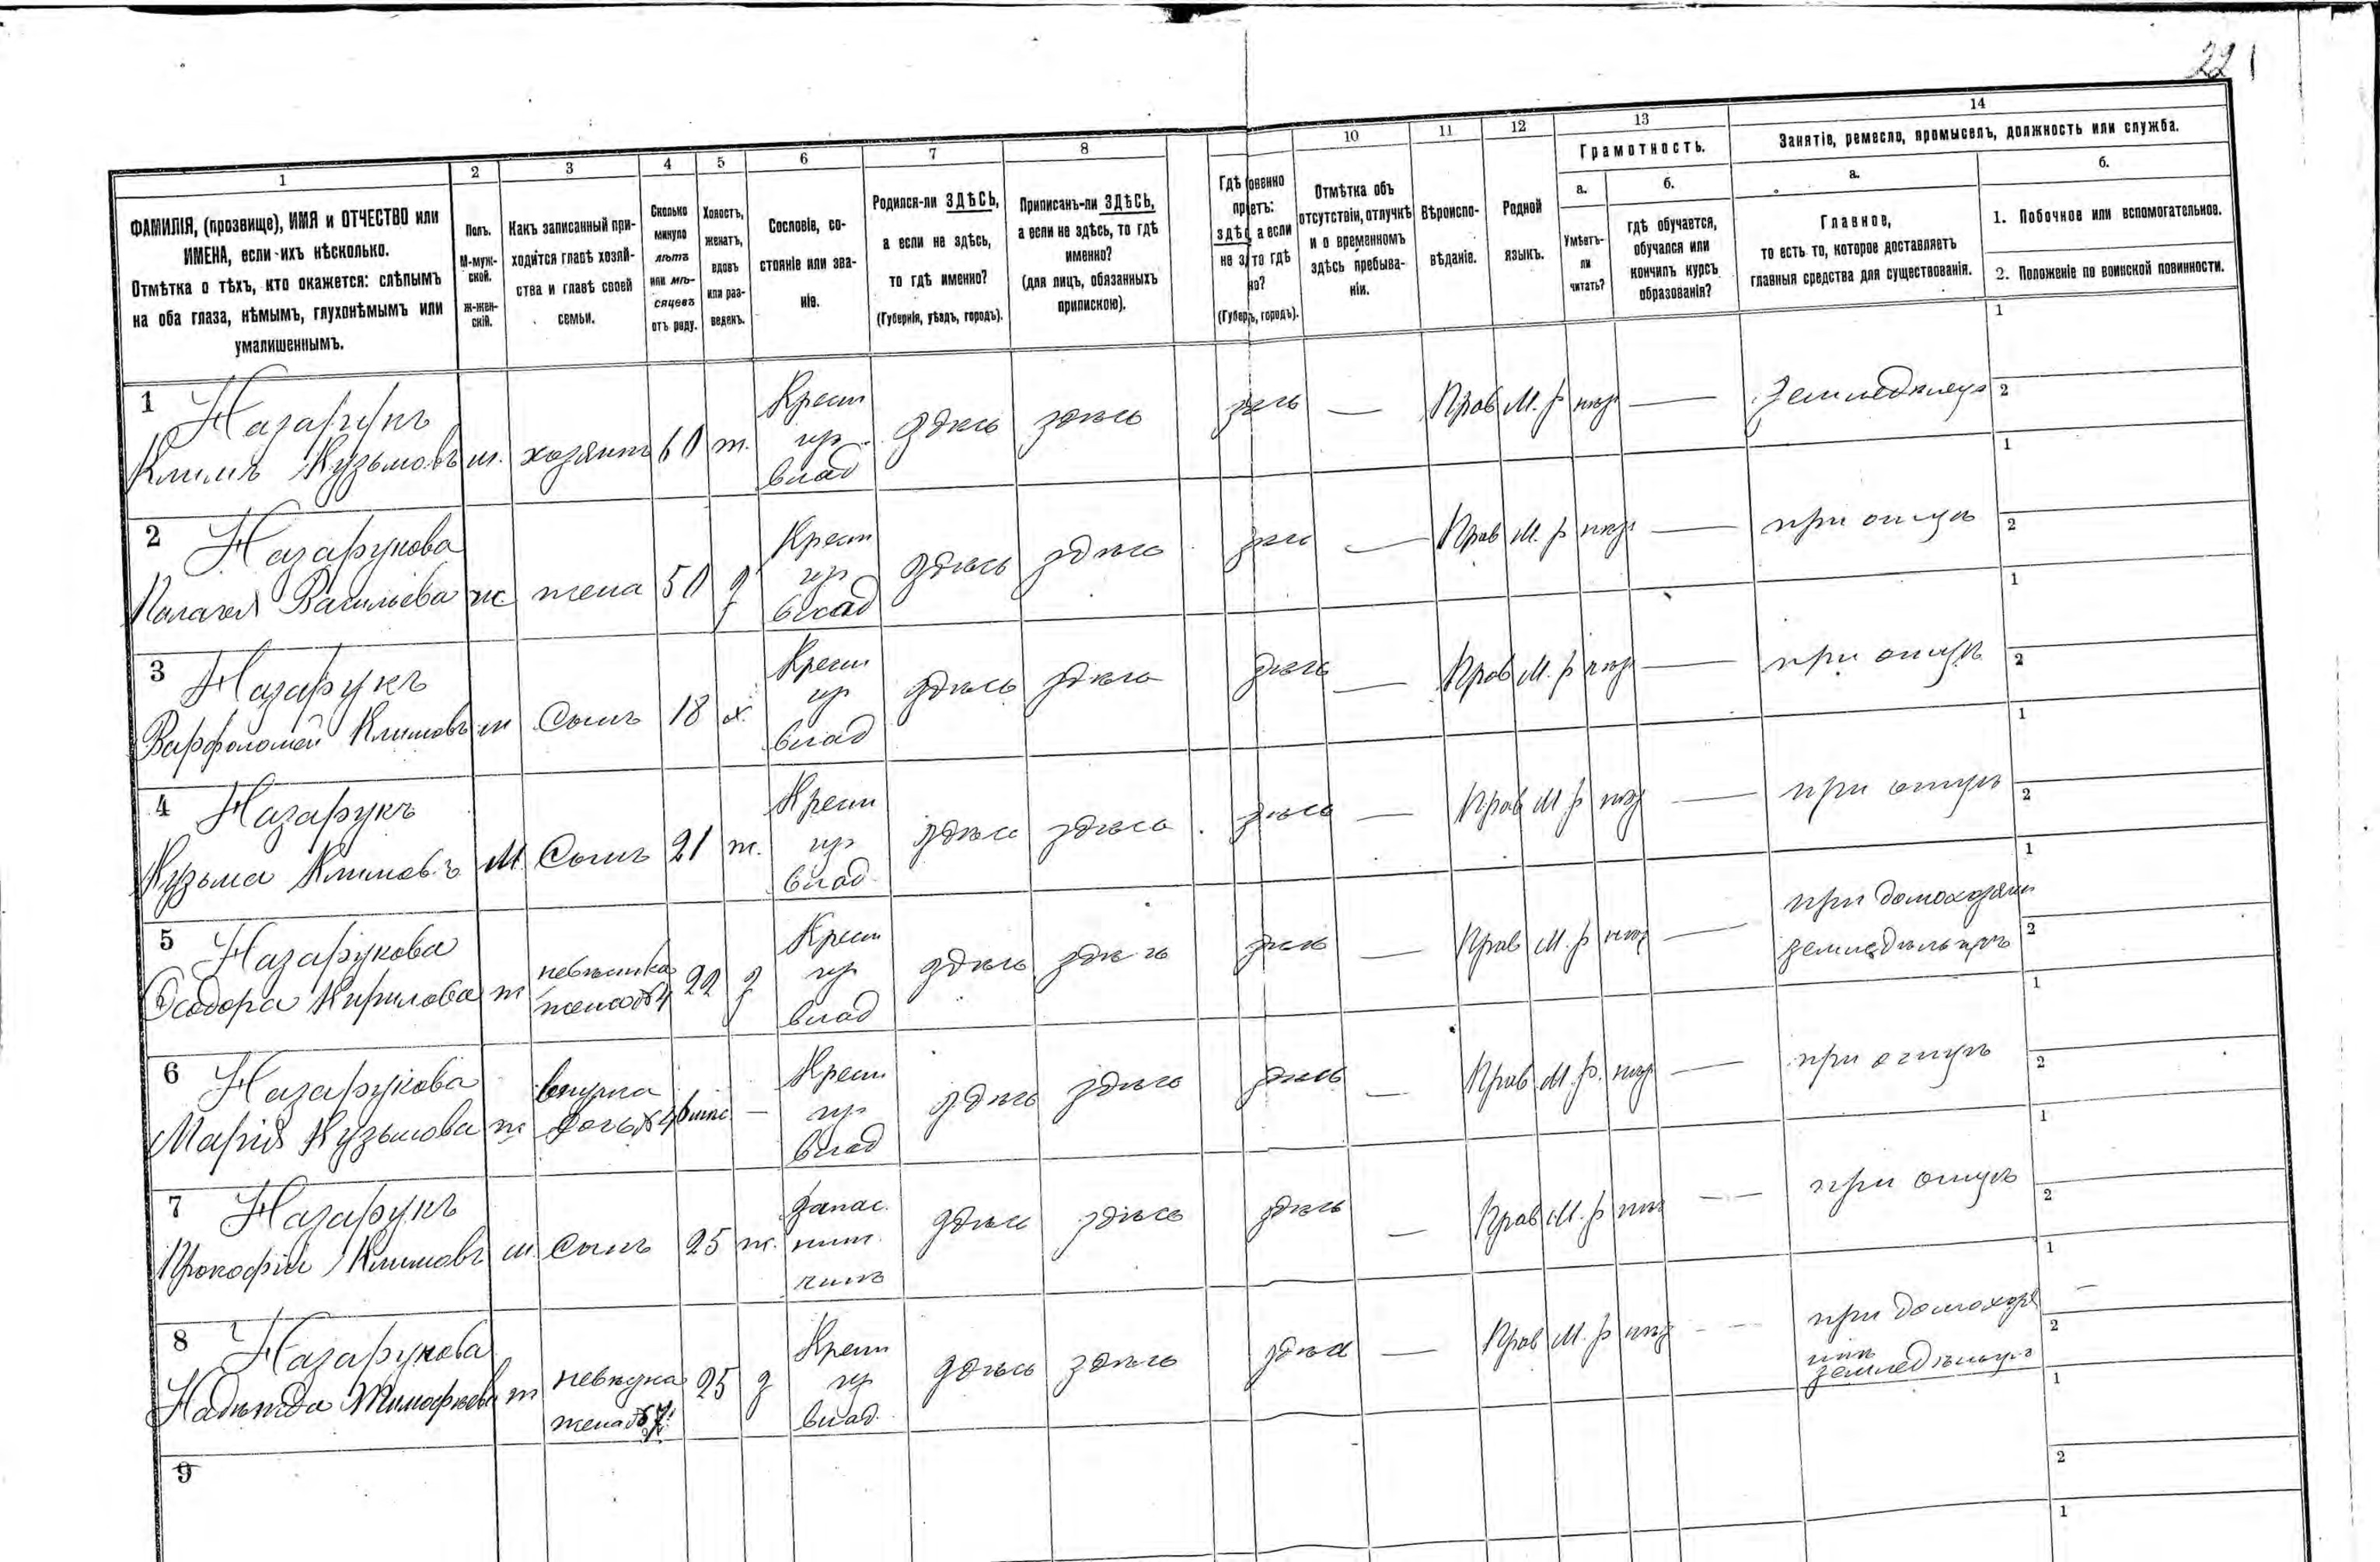 221
1 2 3 4 5 6 7 8 10 11 12 13 14
ФАМИЛІЯ, (прозвище), ИМЯ и ОТЧЕСТВО или
ИМЕНА, если ихъ нѣсколько.
Отмѣтка о тѣхъ, кто окажется: слѣпымъ
на оба глаза, нѣмымъ, глухонѣмымъ или
умалишеннымъ.
Полъ.
М-муж-
ской.
ж-жен-
скій.
Какъ записанный при-
ходится главѣ хозяй-
ства и главѣ своей
семьи.
Сколько
минуло
лѣтъ
или мѣ-
сяцевъ
отъ роду.
Холостъ,
женатъ,
вдовъ
или раз-
веденъ.
Сословіе, со-
стояніе или зва-
ніе.
Родился-ли ЗДѢСЬ,
а если не здѣсь,
то гдѣ именно?
(Губернія, уѣздъ, городъ).
Приписанъ-ли ЗДѢСЬ,
а если не здѣсь, то гдѣ
именно?
(для лицъ, обязанныхъ
припискою).
Гдѣ овенно
прetъ:
здѣс а если
не з то гдѣ
но?
(Губерь, городъ).
Отмѣтка объ
отсутствіи, отлучкѣ
и о временномъ
здѣсь пребыва-
ніи.
Вѣроиспо-
вѣданіе.
Родной
языкъ.
Грамотность.
а.
Умѣетъ-
ли
читать?
б.
гдѣ обучается,
обучался или
кончилъ курсъ
образованія?
Занятіе, ремесло, промыселъ, должность или служба.
а.
Главное,
то есть то, которое доставляетъ
главныя средства для существованія.
б.
1. Побочное или вспомогательное.
2. Положеніе по воинской повинности.
1 Назарукъ
Климъ Кузьмовъ м. хозяинъ 60 ж. Крест из влад здѣсь здѣсь здѣсь — Прав М. р нѣт — Земледѣлецъ 1 2
2 Назарукова
Палагея Васильева ж жена 50 з Крест из влад здѣсь здѣсь здѣсь — Прав М. р нѣт — при отцѣ 1 2
3 Назарукъ
Варфоломей Климовъ м Сынъ 18 х. Крест из влад здѣсь здѣсь здѣсь — Прав М. р нѣт — при отцѣ 1 2
4 Назарукъ
Кузьма Климовъ М. Сынъ 21 ж. Крест из влад здѣсь здѣсь здѣсь — Прав М р нѣт — при отцѣ 1 2
5 Назарукова
Ѳеодора Кирилова ж невѣстка жена №4 22 з Крест из влад здѣсь здѣсь здѣсь — Прав М. р нѣт — при домохозяин земледѣльцѣ 1 2
6 Назарукова
Марія Кузьмова ж внучка дочь №4 — Крест из влад здѣсь здѣсь здѣсь — Прав М. р. нѣт — при отцѣ 1 2
7 Назарукъ
Прокофій Климовъ м. Сынъ 25 ж. запас. ниж. чинъ здѣсь здѣсь здѣсь — Прав М. р нѣт — при отцѣ 1 2
8 Назарукова
Надежда Тимофеева ж жена №7 25 з Крест из влад. здѣсь здѣсь здѣсь — Прав М. р нѣт — при домохозя инѣ земледѣльцѣ 1 — 2
9 1 2
1